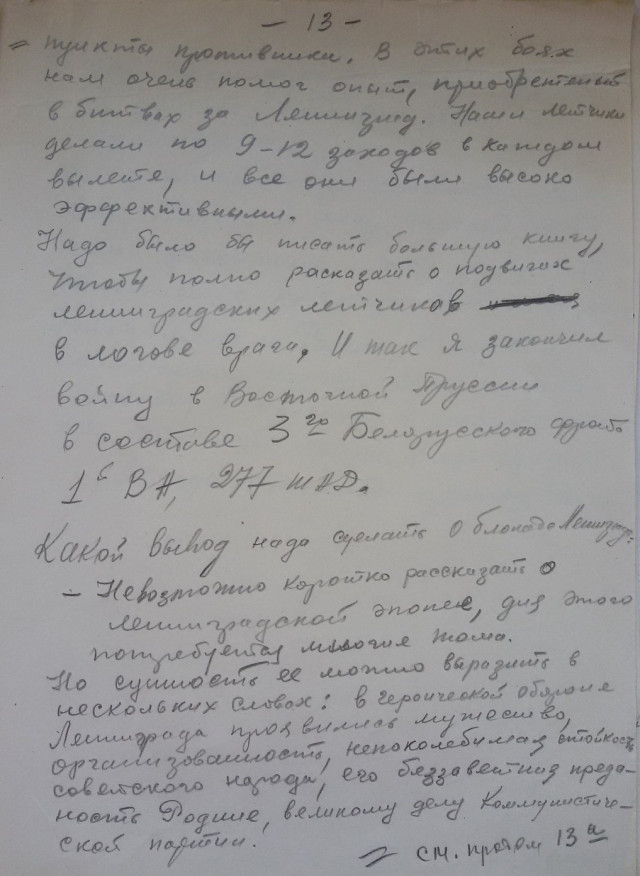 - 13 -
= пункты противника. В этих боях
нам очень помог опыт, приобретеный
в битвах за Ленинград. Наши летчики
делали по 9-12 заходов в каждом
вылете, и все они были высоко
эффективными.
Надо было бы писать большую книгу,
чтобы полно расказать о подвигах
ленинградских летчиков
в логове врага. И так я закончил
войну в Восточной Пруссии
в составе 3го Белорусского фронта
1й ВА, 277 шАД.
Какой вывод надо сделать о блокаде Ленингр:
- Невозможно коротко рассказать о
ленинградской эпопее, для этого
потребуется многие тома.
Но сущность ее можно выразить в
нескольких словах: в героической обороне
Ленинграда проявились мужество,
организованность, непоколебимая стойкость
советского народа, его беззаветная преда-
ность Родине, великому делу Коммунистиче-
ской партии.
= см. 13а